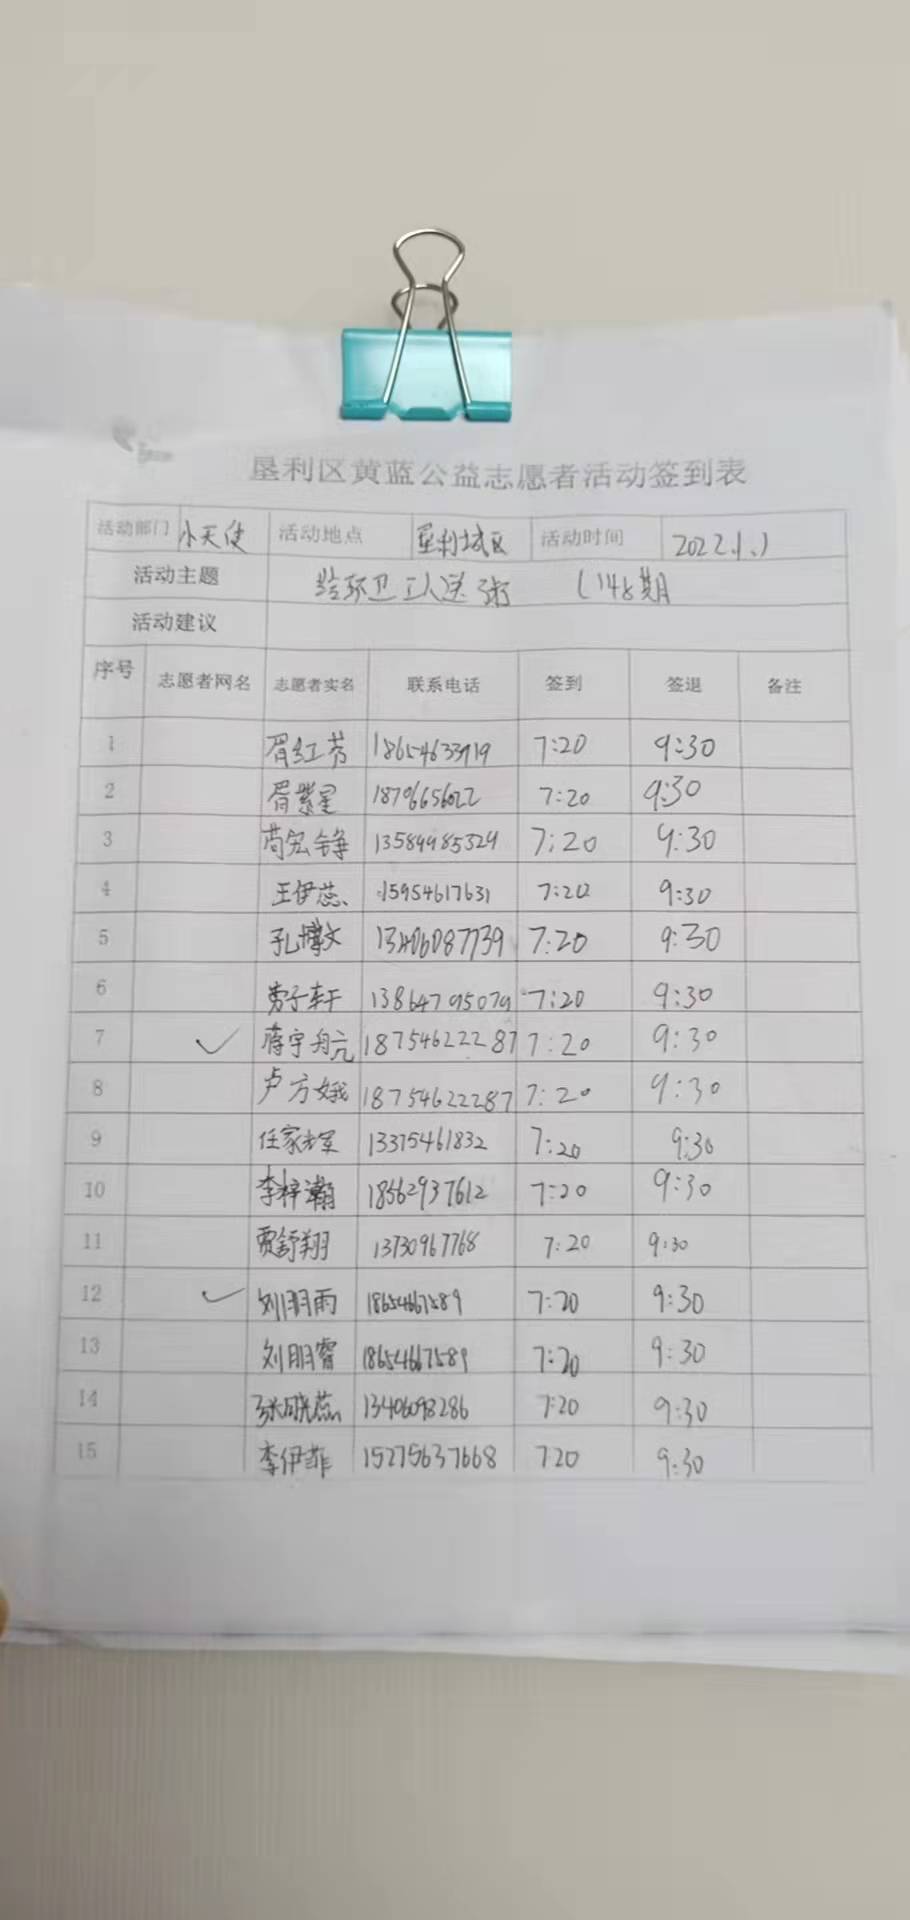 垦利区黄蓝公益志愿者活动签到表
活动部门 小天使 活动地点 垦利城区 活动时间 2022.1.1
活动主题 给环卫工人送粥 (148期
活动建议
序号 志愿者网名 志愿者实名 联系电话 签到 签退 备注
1 胥红芳 18654633919 7:20 9:30
2 胥紫星 18706656022 7:20 9:30
3 苘宏铮 13589985329 7:20 9:30
4 王伊蕊 15954617631 7:20 9:30
5 孔博文 13406087739 7:20 9:30
6 子轩 13864795079 7:20 9:30
7 ✓ 蒋宇航 18754622287 7:20 9:30
8 卢方娥 18754622287 7:20 9:30
9 任家 13375461832 7:20 9:30
10 李梓瀚 18562937612 7:20 9:30
11 贾舒翔 13730967768 7:20 9:30
12 ✓ 刘玥雨 18654667589 7:20 9:30
13 刘玥睿 18654667589 7:20 9:30
14 张晓蕊 13406098286 7:20 9:30
15 李伊菲 15275637668 7:20 9:30